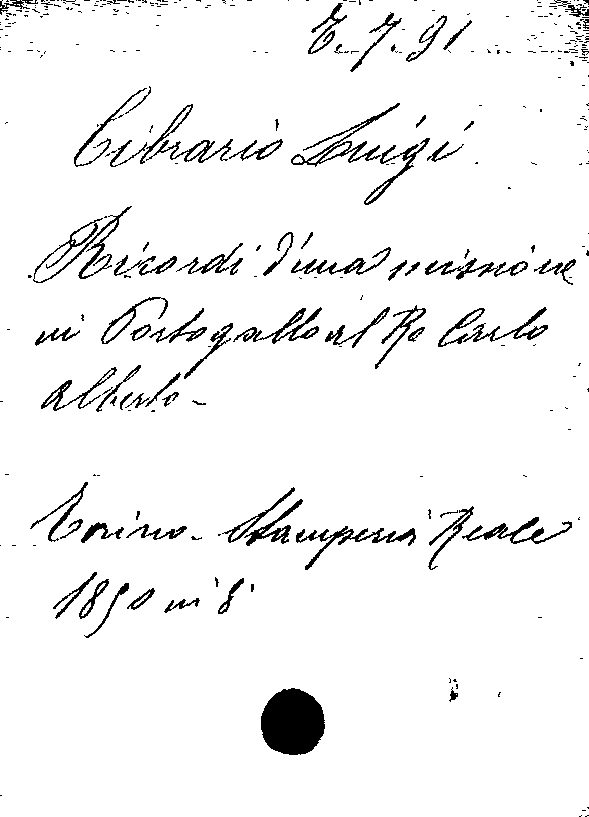 E. 7. 91
Cibrario Luigi
Ricordi d'una missione
in Portogallo al Re Carlo
Alberto -
Torino - Stamperia Reale
1850 in 8°